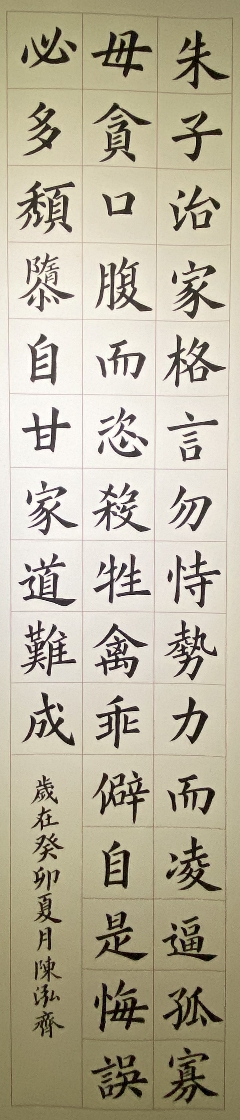 朱子治家格言勿恃勢力而凌逼孤寡
毋貪口腹而恣殺牲禽乖僻自是悔誤
必多頹隳自甘家道難成
歲在癸卯夏月陳泓齊